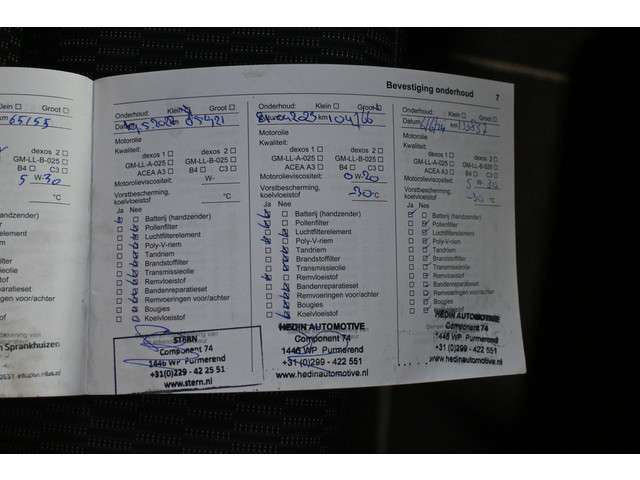 Bevestiging onderhoud 7
Klein Groot
km 65155
dexos 2
GM-LL-B-025
B4 C3
5 W-30
°C
(handzender)
ter
lterelement
em
n
tofilter
ssieolie
stof
paratieset
ingen voor/achter
stof
n Sprankhuizen
Onderhoud: Klein Groot
Datum km 85421
Motorolie
Kwaliteit:
dexos 1 dexos 2
GM-LL-A-025 GM-LL-B-025
ACEA A3 B4 C3
Motorolieviscositeit: W-
Vorstbescherming,
koelvloeistof °C
Ja Nee
Batterij (handzender)
Pollenfilter
Luchtfilterelement
Poly-V-riem
Tandriem
Brandstoffilter
Transmissieolie
Remvloeistof
Bandenreparatieset
Remvoeringen voor/achter
Bougies
Koelvloeistof
STERN
Component 74
1446 WP Purmerend
+31(0)229 - 42 25 51
www.stern.nl
Onderhoud: Klein Groot
Datum 2023 km 104766
Motorolie
Kwaliteit:
dexos 1 dexos 2
GM-LL-A-025 GM-LL-B-025
ACEA A3 B4 C3
Motorolieviscositeit: 0 W-20
Vorstbescherming,
koelvloeistof -30 °C
Ja Nee
Batterij (handzender)
Pollenfilter
Luchtfilterelement
Poly-V-riem
Tandriem
Brandstoffilter
Transmissieolie
Remvloeistof
Bandenreparatieset
Remvoeringen voor/achter
Bougies
Koelvloeistof
HEDIN AUTOMOTIVE
Component 74
1446 WP Purmerend
+31 (0)299 - 422 551
www.hedinautomotive.nl
Onderhoud: Klein Groot
Datum km
Motorolie
Kwaliteit:
dexos 1 dexos 2
GM-LL-A-025 GM-LL-B-025
ACEA A3 B4 C3
Motorolieviscositeit: 5 W-30
Vorstbescherming,
koelvloeistof -30 °C
Ja Nee
Batterij (handzender)
Pollenfilter
Luchtfilterelement
Poly-V-riem
Tandriem
Brandstoffilter
Transmissieolie
Remvloeistof
Bandenreparatieset
Remvoeringen voor/achter
Bougies
Koelvloeistof
HEDIN AUTOMOTIVE
Component 74
1446 WP Purmerend
+31(0)299 - 422 551
www.hedinautomotive.nl